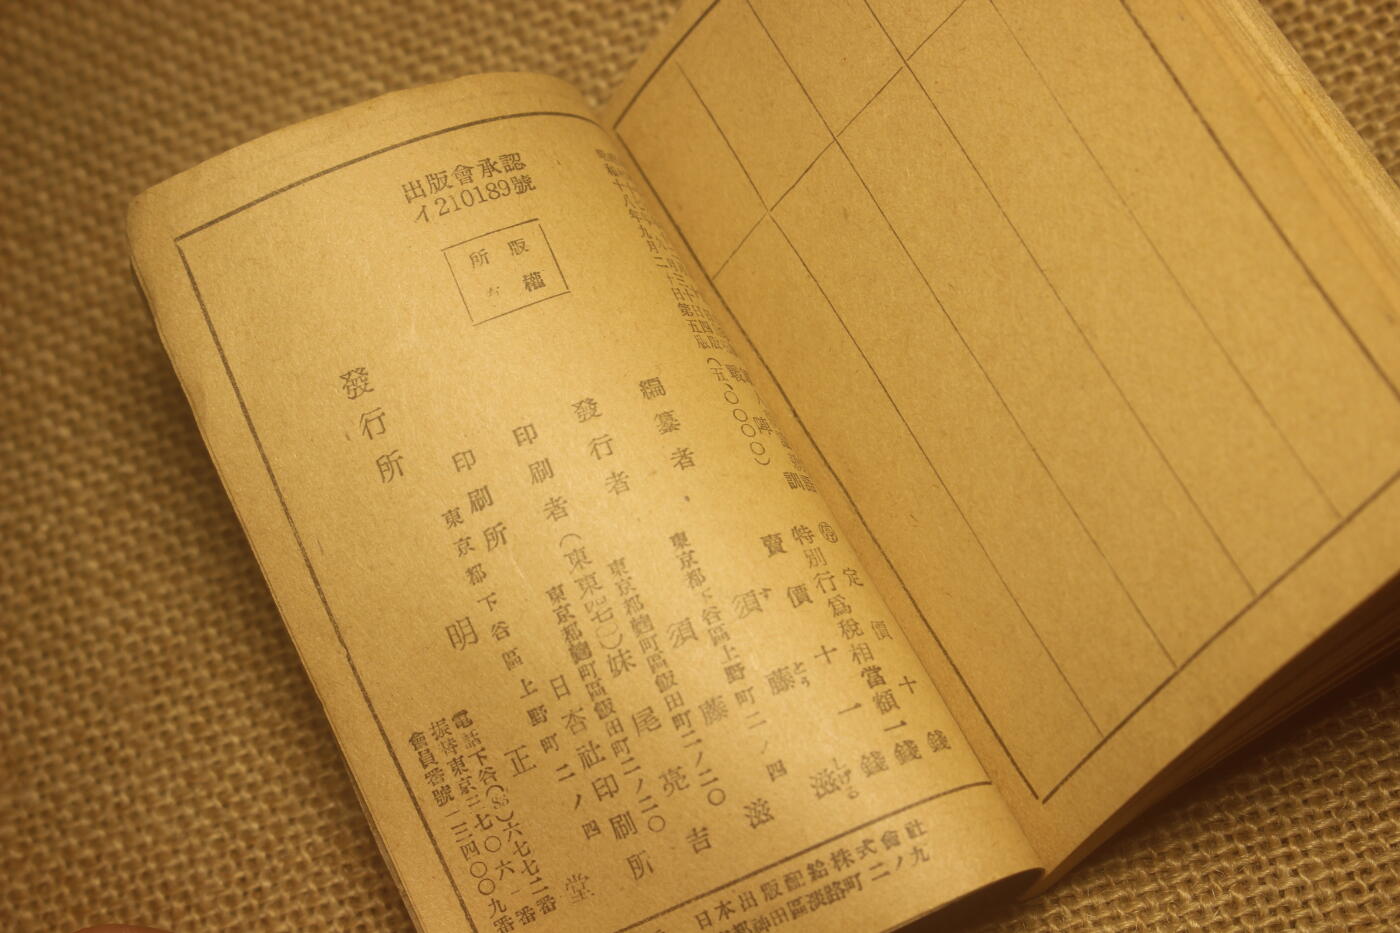 出版會承認
イ210189號
版權
所有
九月二
日第五版
(五、〇〇〇〇)
訓
㊞
定價十錢
特別行爲税相當額一錢
賣價十一錢
編纂者 須藤滋
東京都下谷區上野町二ノ四
發行者 須藤滋
東京都麹町區飯田町二ノ二〇
印刷者(東東四七一)妹尾亮吉
東京都麹町區飯田町二ノ二〇
印刷所 日杏社印刷所
東京都下谷區上野町二ノ四
發行所 明正堂
電話下谷(83)六七七二番
振替東京三七〇六一番
會員番號一三四〇〇九番
日本出版配給株式會社
都神田區淡路町二ノ九